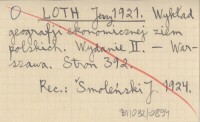 O LOTH Jerzy 1921. Wykład
geografji ekonomicznej ziem
polskich. Wydanie II. – War-
szawa. Stron 312.
Rec.: Smoleński J. 1924.